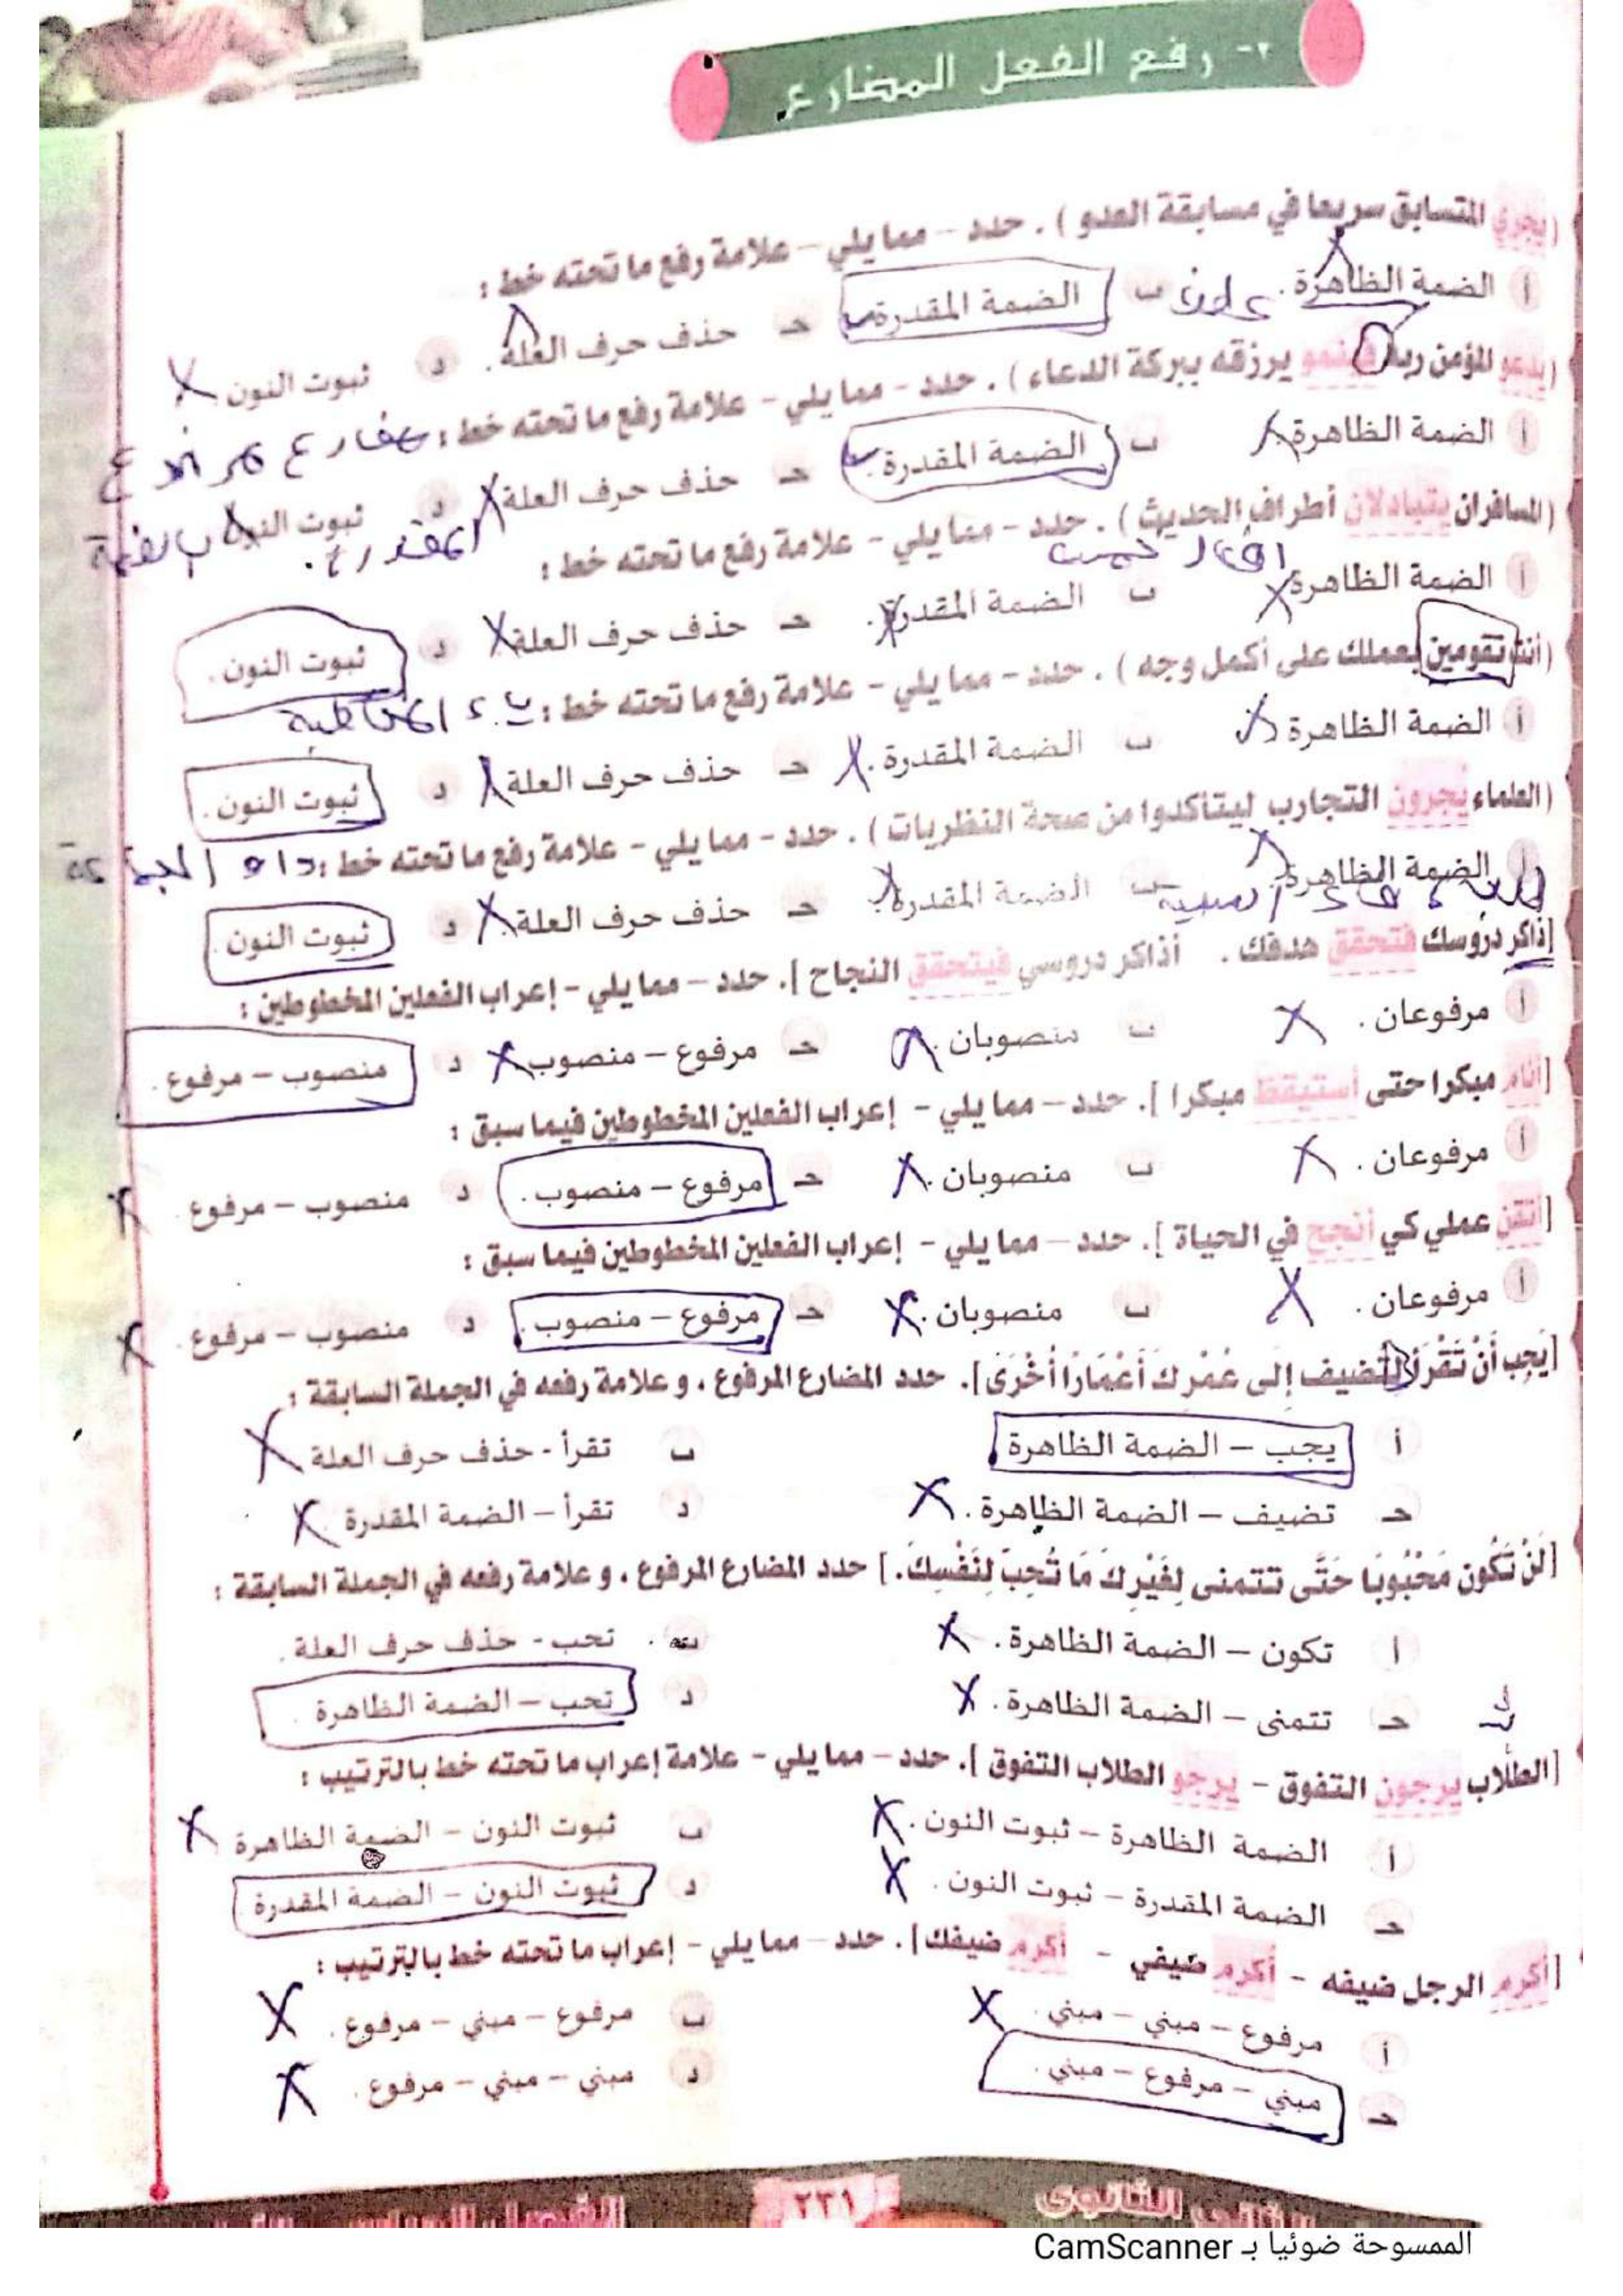 ٢- رفع الفعل المضارع
( يجري المتسابق سريعا في مسابقة العدو ) . حدد - مما يلي - علامة رفع ما تحته خط :
أ الضمة الظاهرة . ب الضمة المقدرة . حـ حذف حرف العلة . د ثبوت النون
( يدعو المؤمن ربه يرزقه ببركة الدعاء ) . حدد - مما يلي - علامة رفع ما تحته خط :
أ الضمة الظاهرة . ب الضمة المقدرة . حـ حذف حرف العلة . د ثبوت النون
المقدرة .
( المسافران يتبادلان أطراف الحديث ) . حدد - مما يلي - علامة رفع ما تحته خط :
أ الضمة الظاهرة . ب الضمة المقدرة . حـ حذف حرف العلة . د ثبوت النون .
( أنت تقومين بعملك على أكمل وجه ) . حدد - مما يلي - علامة رفع ما تحته خط : ياء المخاطبة
أ الضمة الظاهرة . ب الضمة المقدرة . حـ حذف حرف العلة . د ثبوت النون .
( العلماء يُجرون التجارب ليتأكدوا من صحة النظريات ) . حدد - مما يلي - علامة رفع ما تحته خط : واو الجماعة
أ الضمة الظاهرة . ب الضمة المقدرة . حـ حذف حرف العلة . د ثبوت النون .
[ذاكر دروسك فتحقق هدفك . أذاكر دروسي فيتحقق النجاح ]. حدد - مما يلي - إعراب الفعلين المخطوطين :
أ مرفوعان . ب منصوبان . حـ مرفوع - منصوب . د منصوب - مرفوع .
[أنام مبكرا حتى أستيقظ مبكرا ]. حدد - مما يلي - إعراب الفعلين المخطوطين فيما سبق :
أ مرفوعان . ب منصوبان . حـ مرفوع - منصوب . د منصوب - مرفوع .
[أتقن عملي كي أنجح في الحياة ]. حدد - مما يلي - إعراب الفعلين المخطوطين فيما سبق :
أ مرفوعان . ب منصوبان . حـ مرفوع - منصوب . د منصوب - مرفوع .
[يَجِب أَنْ تَقْرَأ لتضيف إلَى عُمْرِكَ أَعْمَارًا أُخْرَى]. حدد المضارع المرفوع ، وعلامة رفعه في الجملة السابقة :
أ يجب - الضمة الظاهرة . ب تقرأ - حذف حرف العلة
حـ تضيف - الضمة الظاهرة . د تقرأ - الضمة المقدرة
[لَنْ تَكُون مَحْبُوبَا حَتَّى تتمنى لِغَيْرِكَ مَا تُحِبّ لِنَفْسِكَ.] حدد المضارع المرفوع ، وعلامة رفعه في الجملة السابقة :
أ تكون - الضمة الظاهرة . ب تحب - حذف حرف العلة .
حـ تتمنى - الضمة الظاهرة . د تحب - الضمة الظاهرة .
[الطلاب يرجون التفوق - يرجو الطلاب التفوق ]. حدد - مما يلي - علامة إعراب ما تحته خط بالترتيب :
أ الضمة الظاهرة - ثبوت النون . ب ثبوت النون - الضمة الظاهرة
حـ الضمة المقدرة - ثبوت النون . د ثبوت النون - الضمة المقدرة
[أكرم الرجل ضيفه - أكرم ضيفي - أكرم ضيفك]. حدد - مما يلي - إعراب ما تحته خط بالترتيب :
أ مرفوع - مبني - مبني . ب مرفوع - مبني - مرفوع .
حـ مبني - مرفوع - مبني . د مبني - مبني - مرفوع .
٢٣١
الثانوي
الممسوحة ضوئيا بـ CamScanner